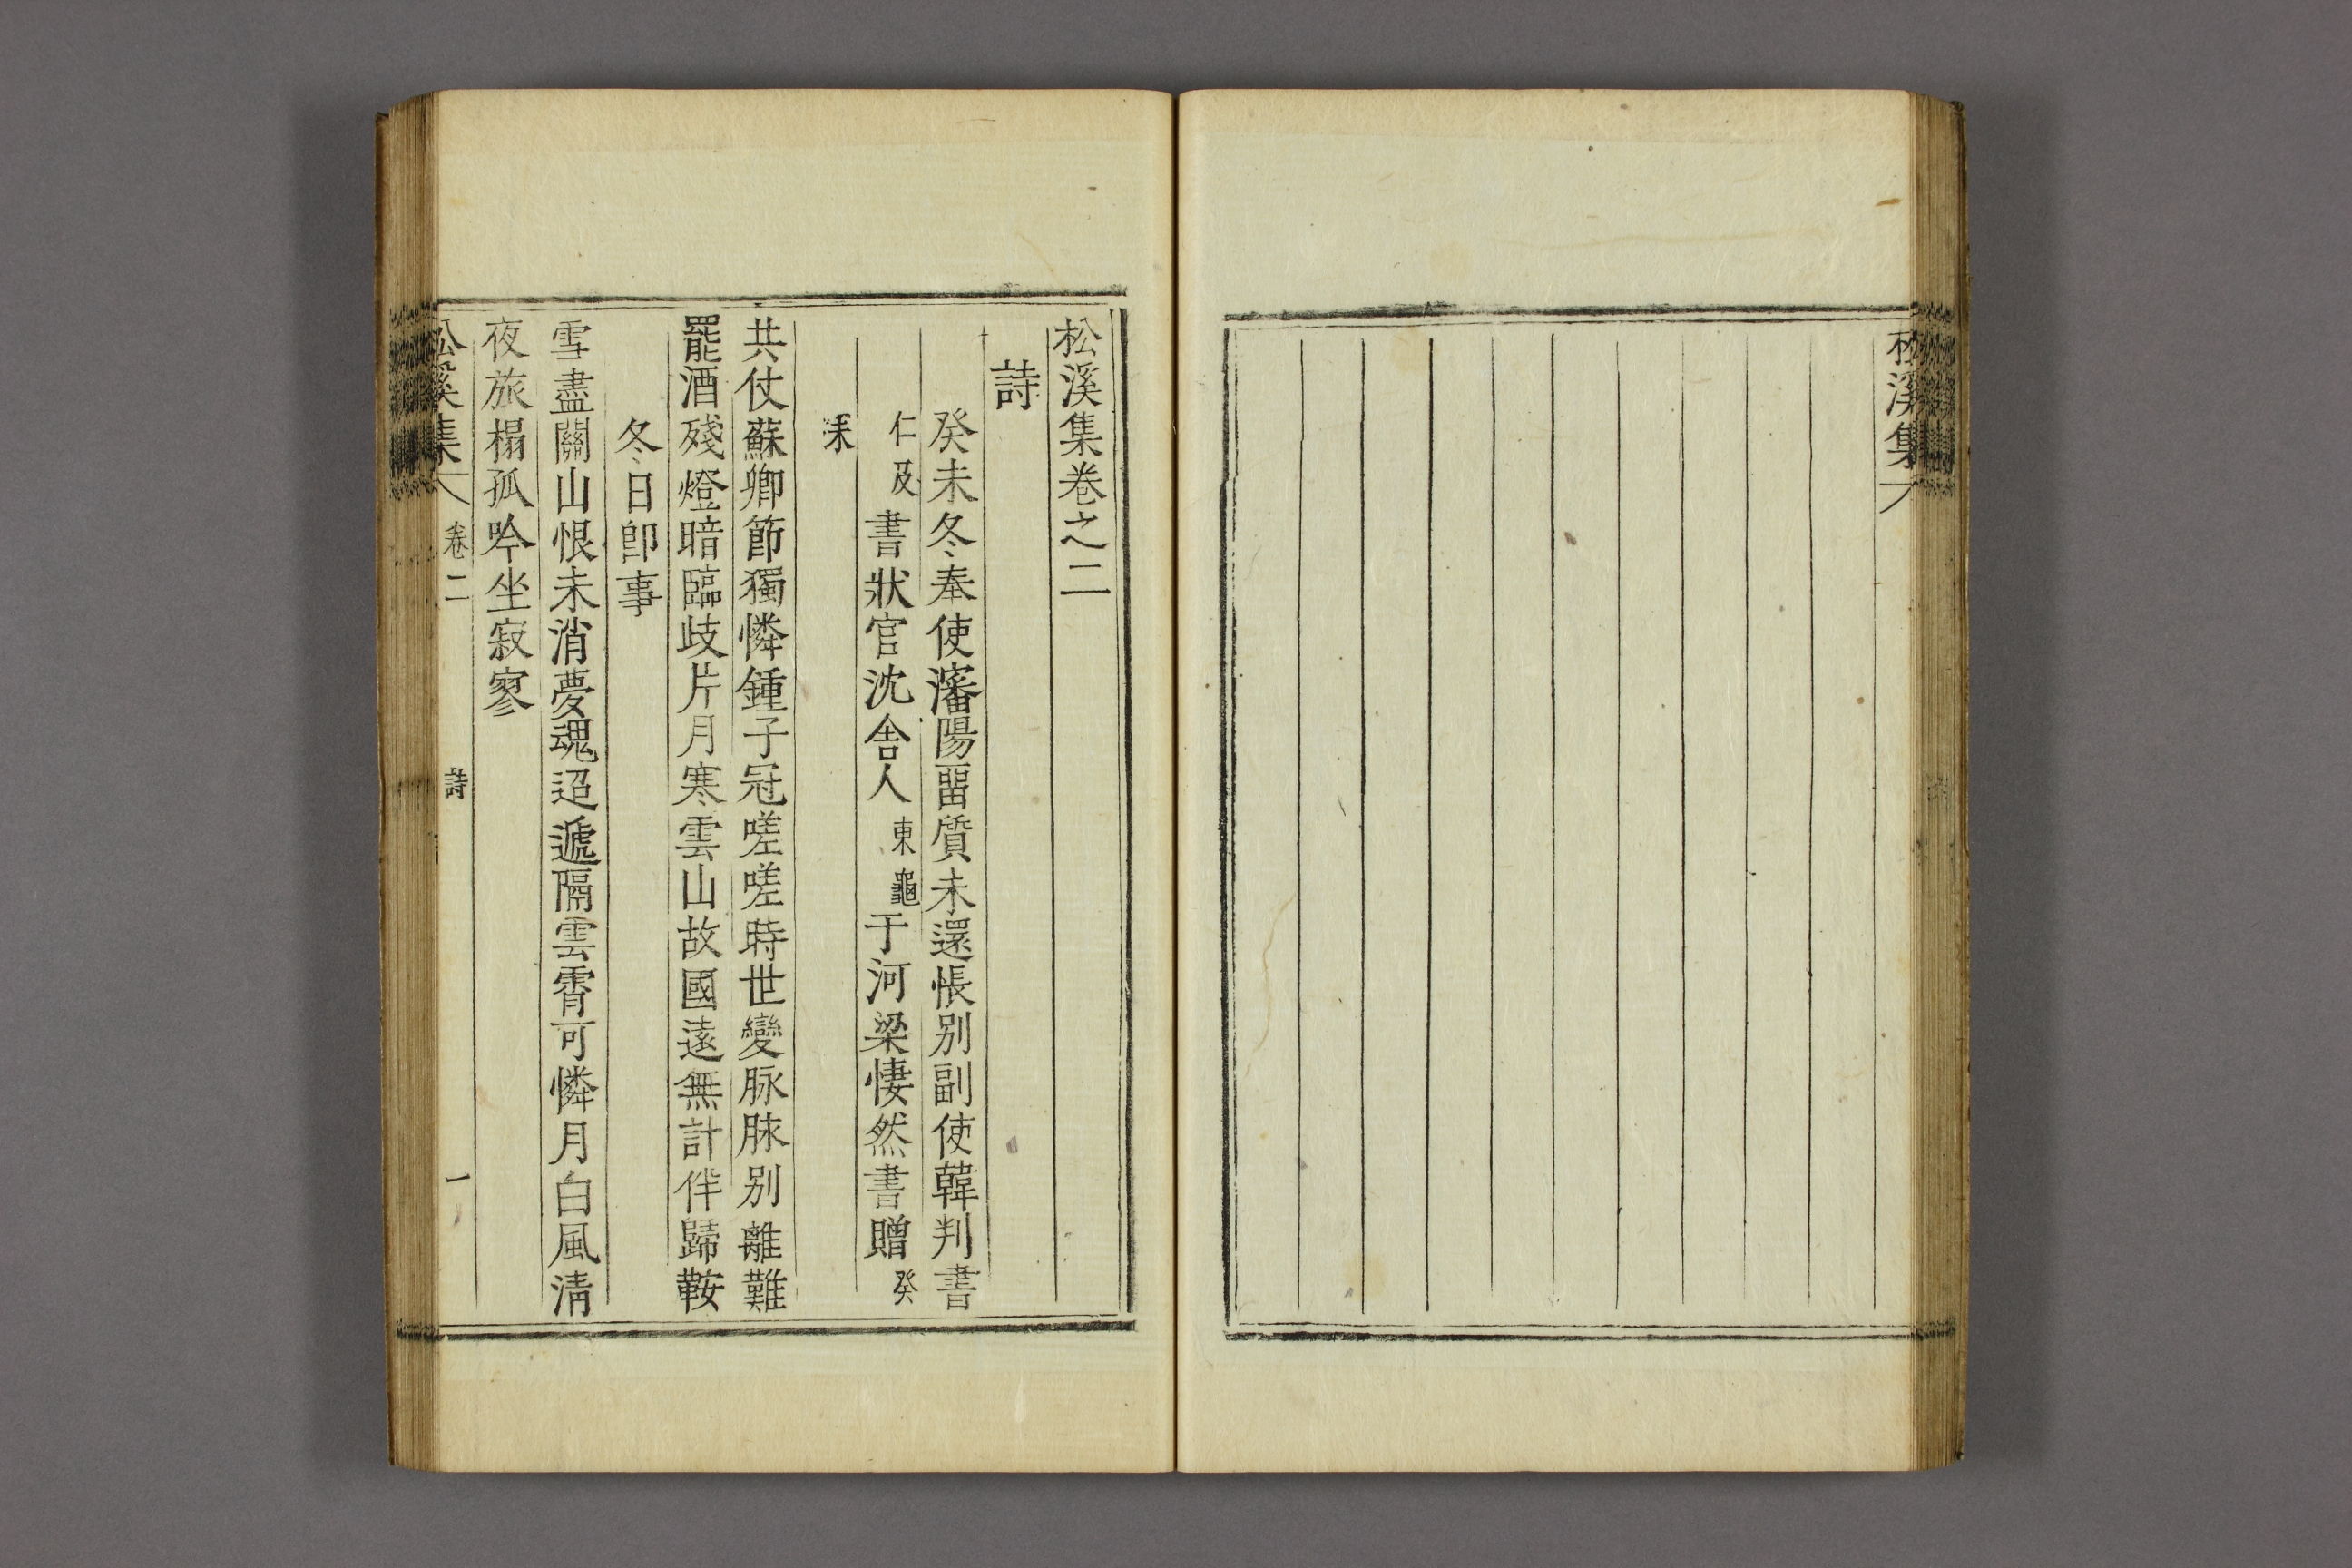 松溪集
松溪集卷之二
詩
癸未冬奉使瀋陽畱質未還悵别副使韓判書
仁及書狀官沈舍人東龜于河梁悽然書贈癸
未
共仗蘇卿節獨憐鍾子冠嗟嗟時世變脉脉别離難
罷酒殘燈暗臨歧片月寒雲山故國遠無計伴歸鞍
冬日卽事
雪盡關山恨未消夢魂迢遞隔雲霄可憐月白風淸
夜旅榻孤吟坐寂寥
松溪集 卷二 詩 一